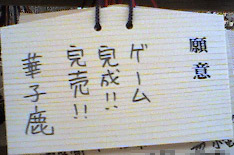 願意
ゲーム
完成!!
完売!!
華子鹿